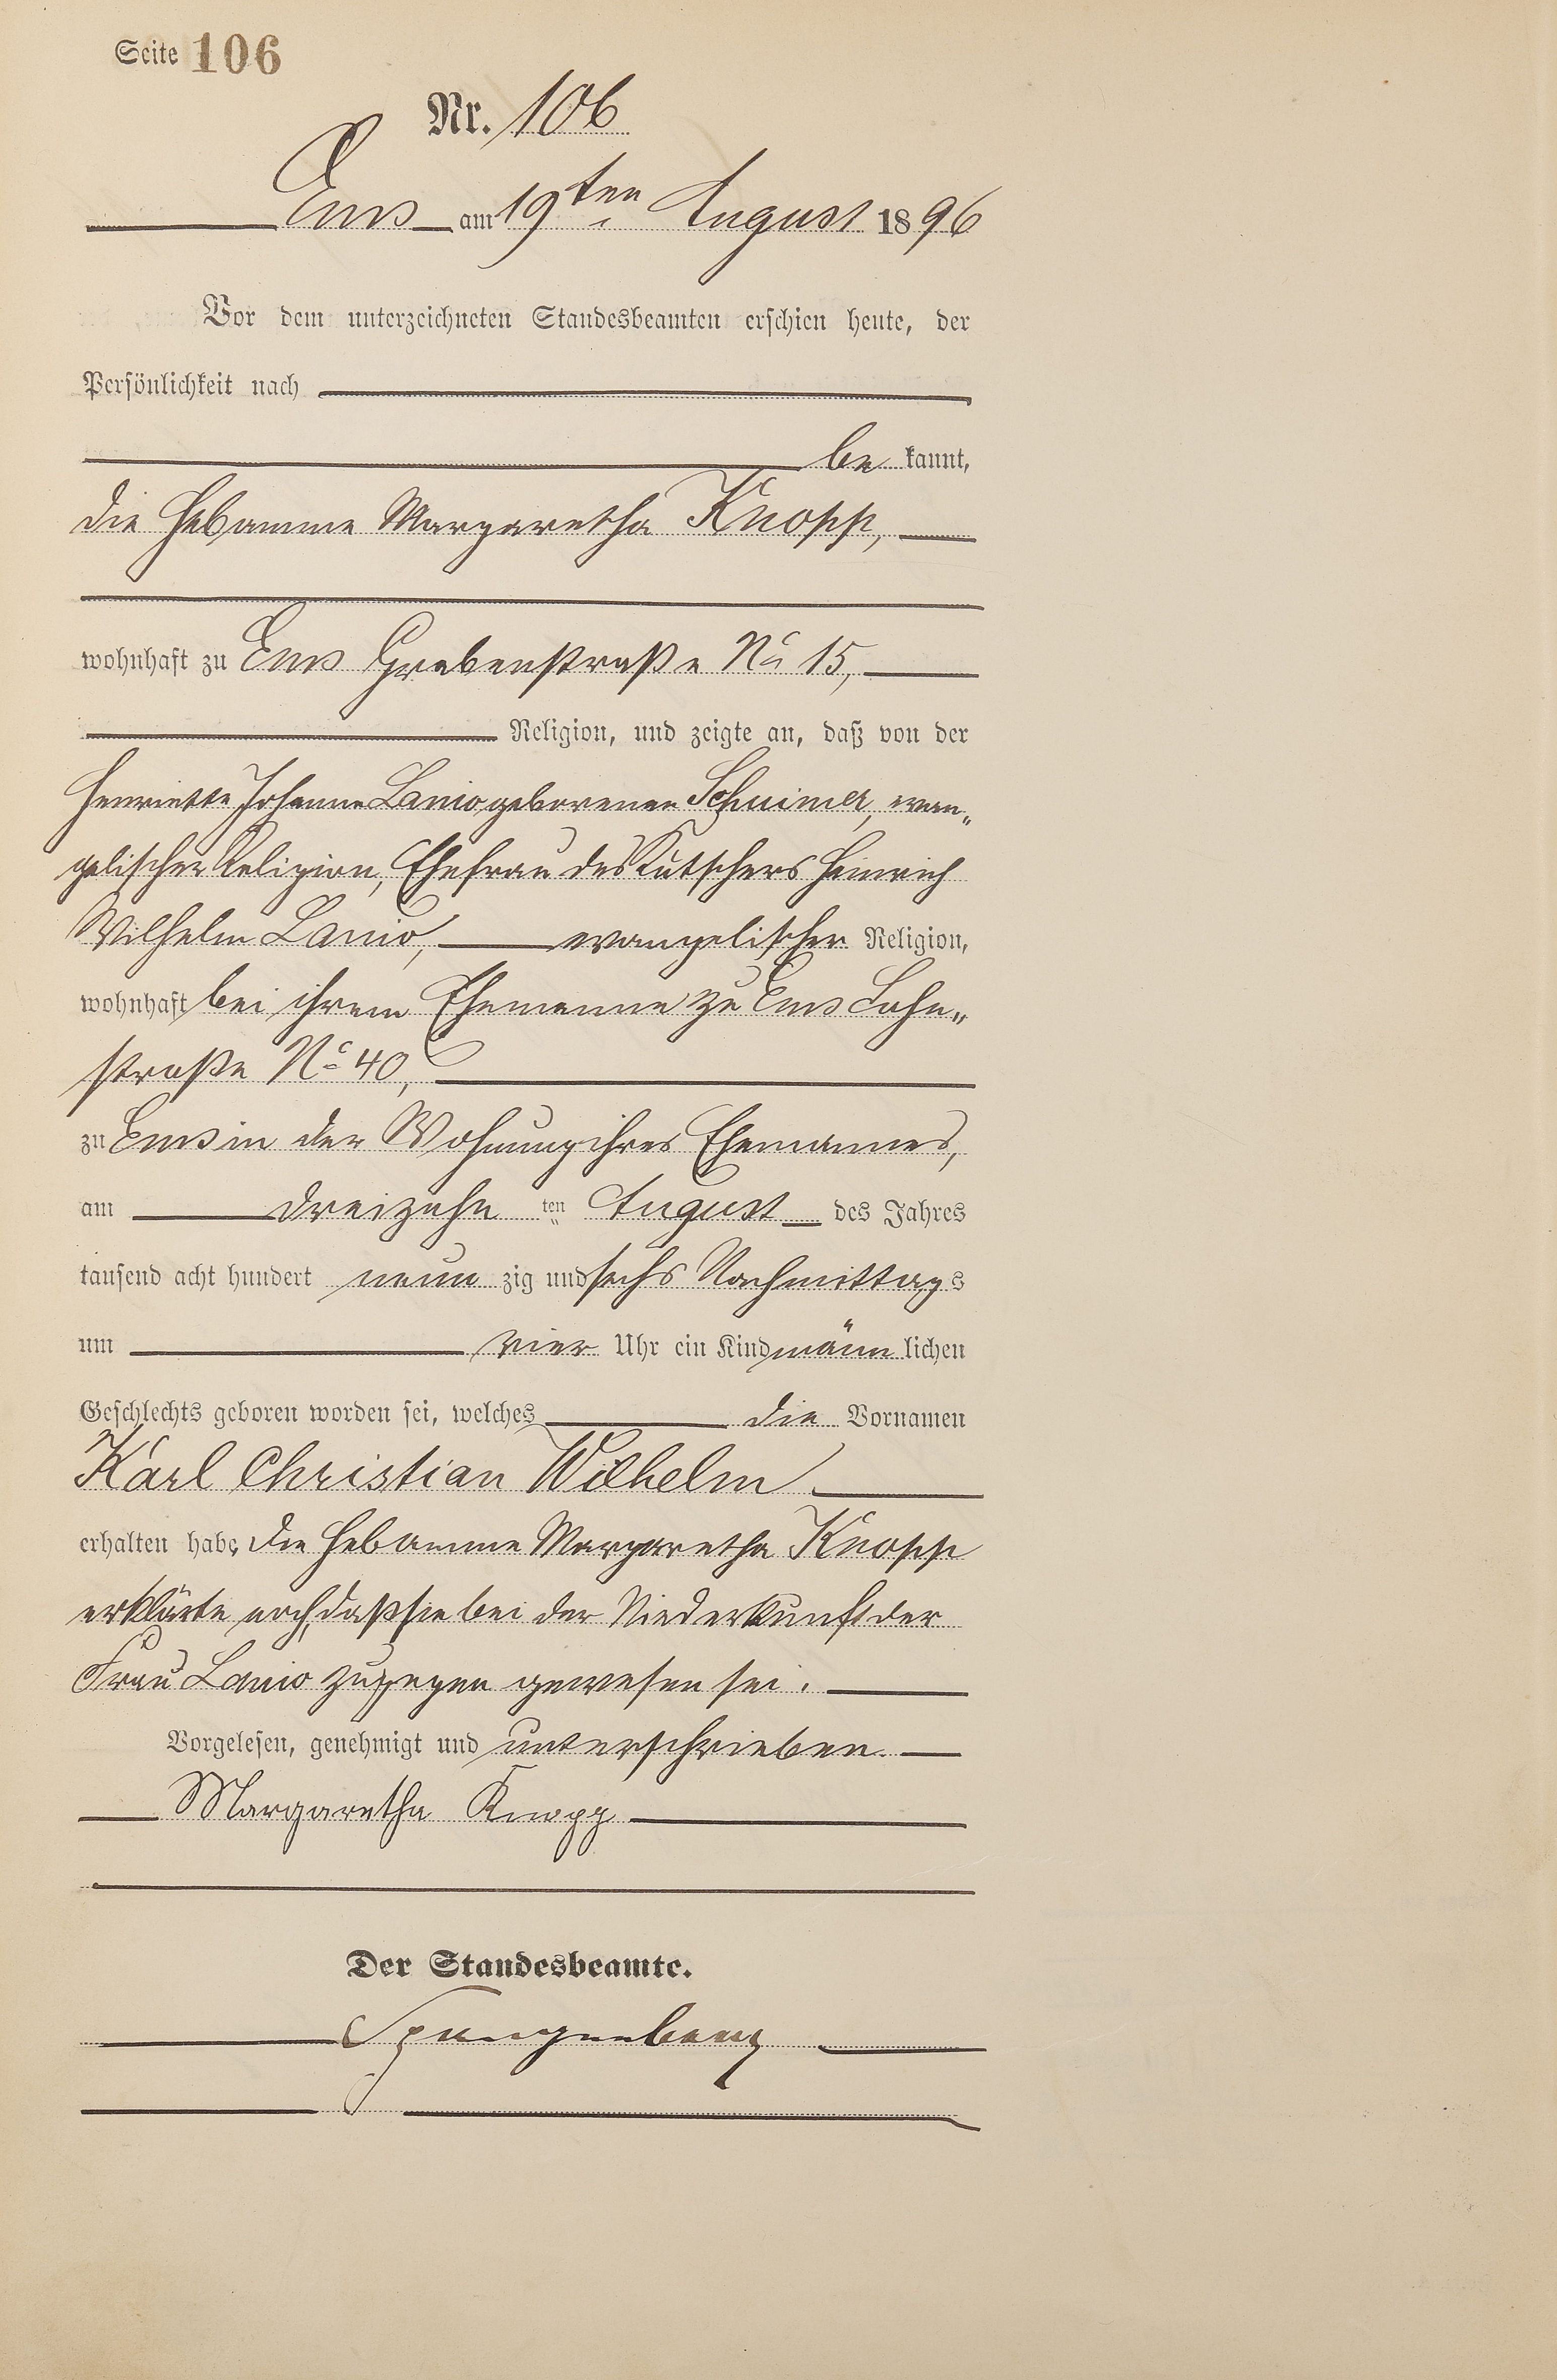 Seite 106
Nr. 106
Ems am 19ten August 1896
Vor dem unterzeichneten Standesbeamten erschien heute, der
Persönlichkeit nach
be kannt,
die Hebamme Margaretha Knopp,
wohnhaft zu Ems Grabenstraße No 15,
Religion, und zeigte an, daß von der
Henriette Johanna Lanio geborenen Schuimer, evan„
gelischer Religion, Ehefrau des Kutschers Heinrich
Wilhelm Lanio, evangelischer Religion,
wohnhaft bei ihrem Ehemanne zu Ems Lahn„
straße No 40,
zu Ems in der Wohnung ihres Ehemannes,
am dreizehn ten August des Jahres
tausend acht hundert neun zig und sechs Nachmittags
um vier Uhr ein Kind männ lichen
Geschlechts geboren worden sei, welches die Vornamen
Karl Christian Wilhelm
erhalten habe, die Hebamme Margaretha Knopp
erklärte noch, daß sie bei der Niederkunft der
Frau Lanio zugegen gewesen sei.
Vorgelesen, genehmigt und unterschrieben.
Margaretha Knopp
Der Standesbeamte.
Spangenberg